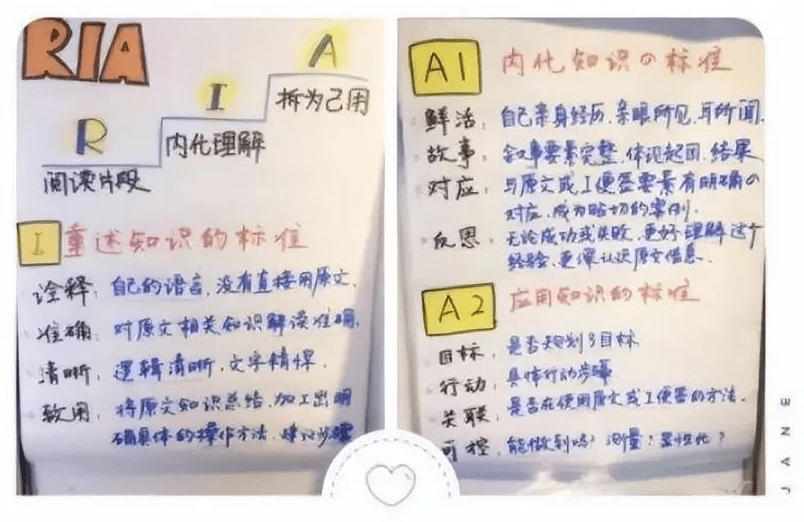 RIA
A
I
拆为己用
R
内化理解
阅读片段
I 重述知识的标准
诠释：自己的语言，没有直接用原文.
准确：对原文相关知识解读准确.
清晰：逻辑清晰，文字精悍.
致用：将原文知识总结、加工出明
确具体的操作方法、建议步骤
A1 内化知识の标准
鲜活：自己亲身经历、亲眼所见、耳所闻.
故事：叙事要素完整，体现起因、结果
对应：与原文或I便签要素有明确の
对应，成为贴切的案例.
反思：无论成功或失败，更好理解这个
经验，更深认识原文信息.
A2 应用知识的标准
目标：是否规划了目标
行动：具体行动步骤
关联：是否在使用原文或I便签的方法.
可控：能做到吗？测量？显性化？
JANE